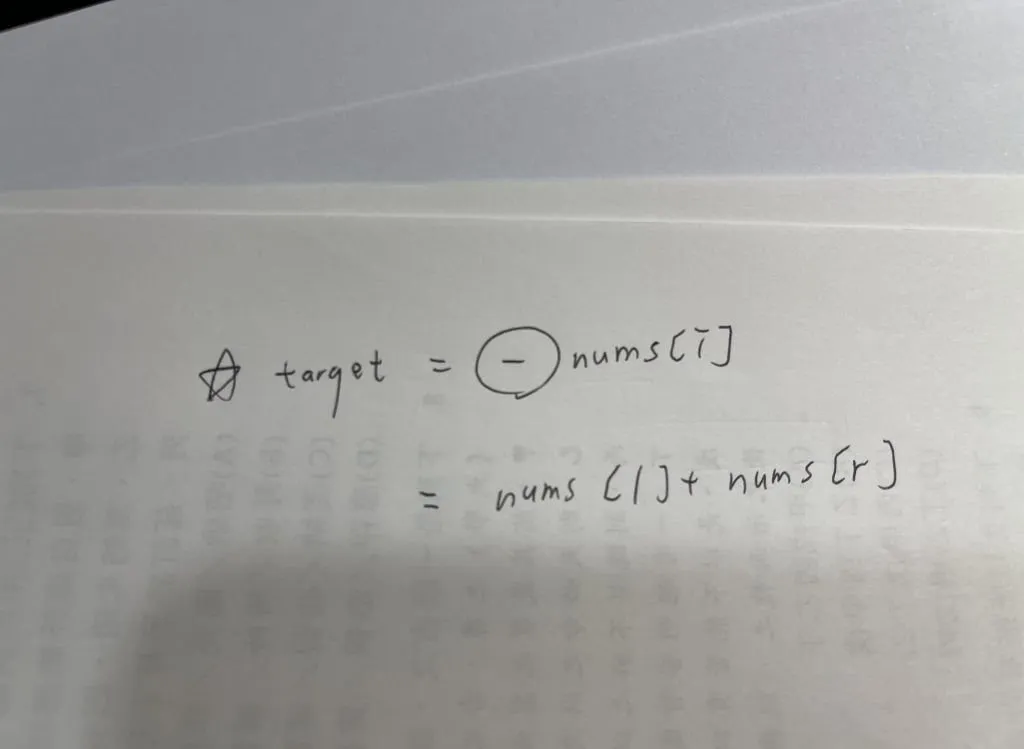 ☆ target = - nums[i]
= nums [l] + nums [r]